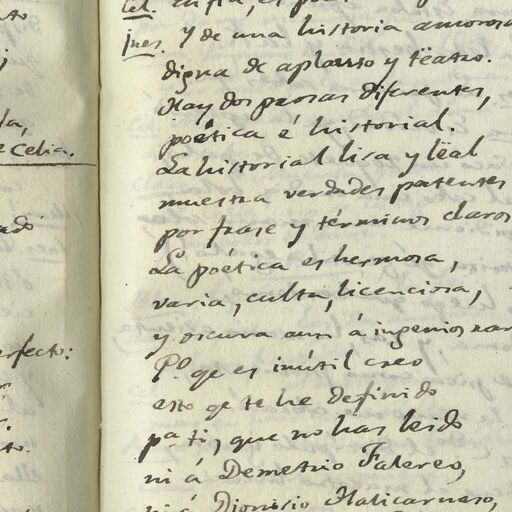 Ines. y de una historia amorosa
digna de aplauso y tëatro.
Hay dos prosas diferentes,
poëtica é historial.
La historial lisa y lëal
muestra verdades patentes
por frase y términos claros
La poëtica es hermosa,
varia, culta, licenciosa,
y oscura aun á ingenios rar
P.º qe es inútil creo
esto qe te he definido
pa ti, que no has leido
ni á Demetrio Falereo,
ni á Dionisio Halicarnaso,
la,
Celia.
erfecto: